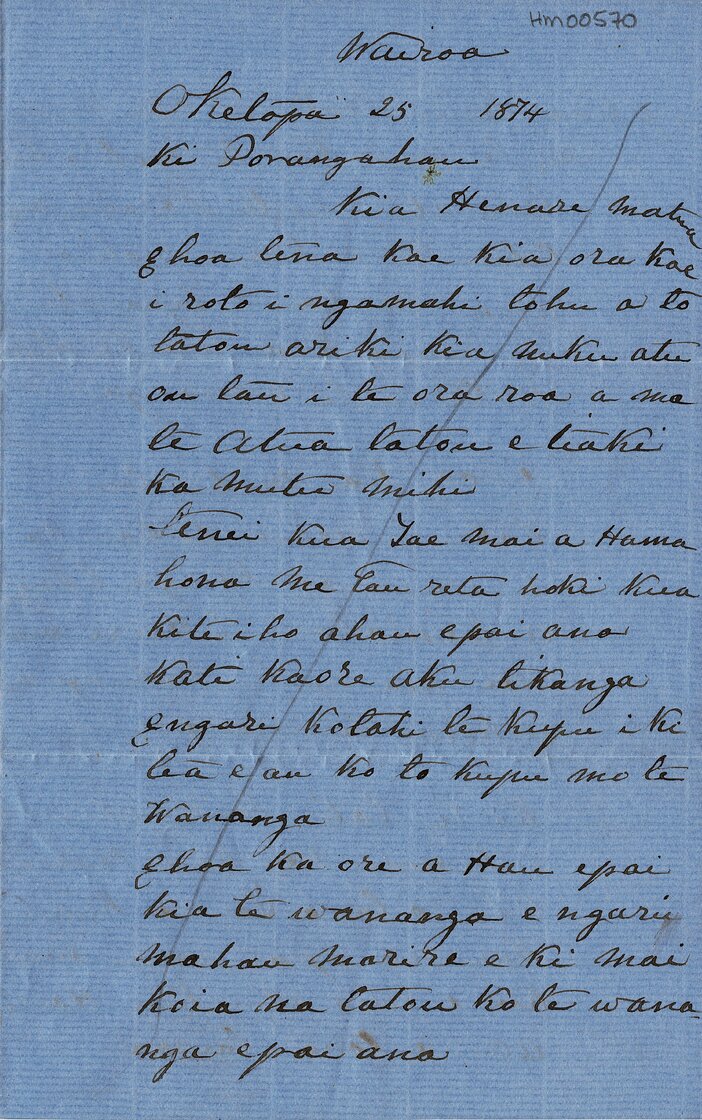 HM00570
Wairoa
Oketopa 25 1874
Ki Porangahau
Kia Henare matua
Ehoa tena koe kia ora koe
i roto i ngamahi tohu a to
tatou ariki kia nuku atu
ou tau i te ora roa a ma
te Atua tatou e tiaki
ka mutu mihi
Tenei kua Tae mai a Hama
hona me Tau reta hoki kua
kite iho ahau epai ana
kati kaore aku tikanga
engari kotahi te kupu i ki
tea e au ko to kupu mo te
Wananga
Ehoa ka ore a Hau epai
kia te wananga e ngari
mahau marire e ki mai
koia na tatou ko te wana
nga epai ana